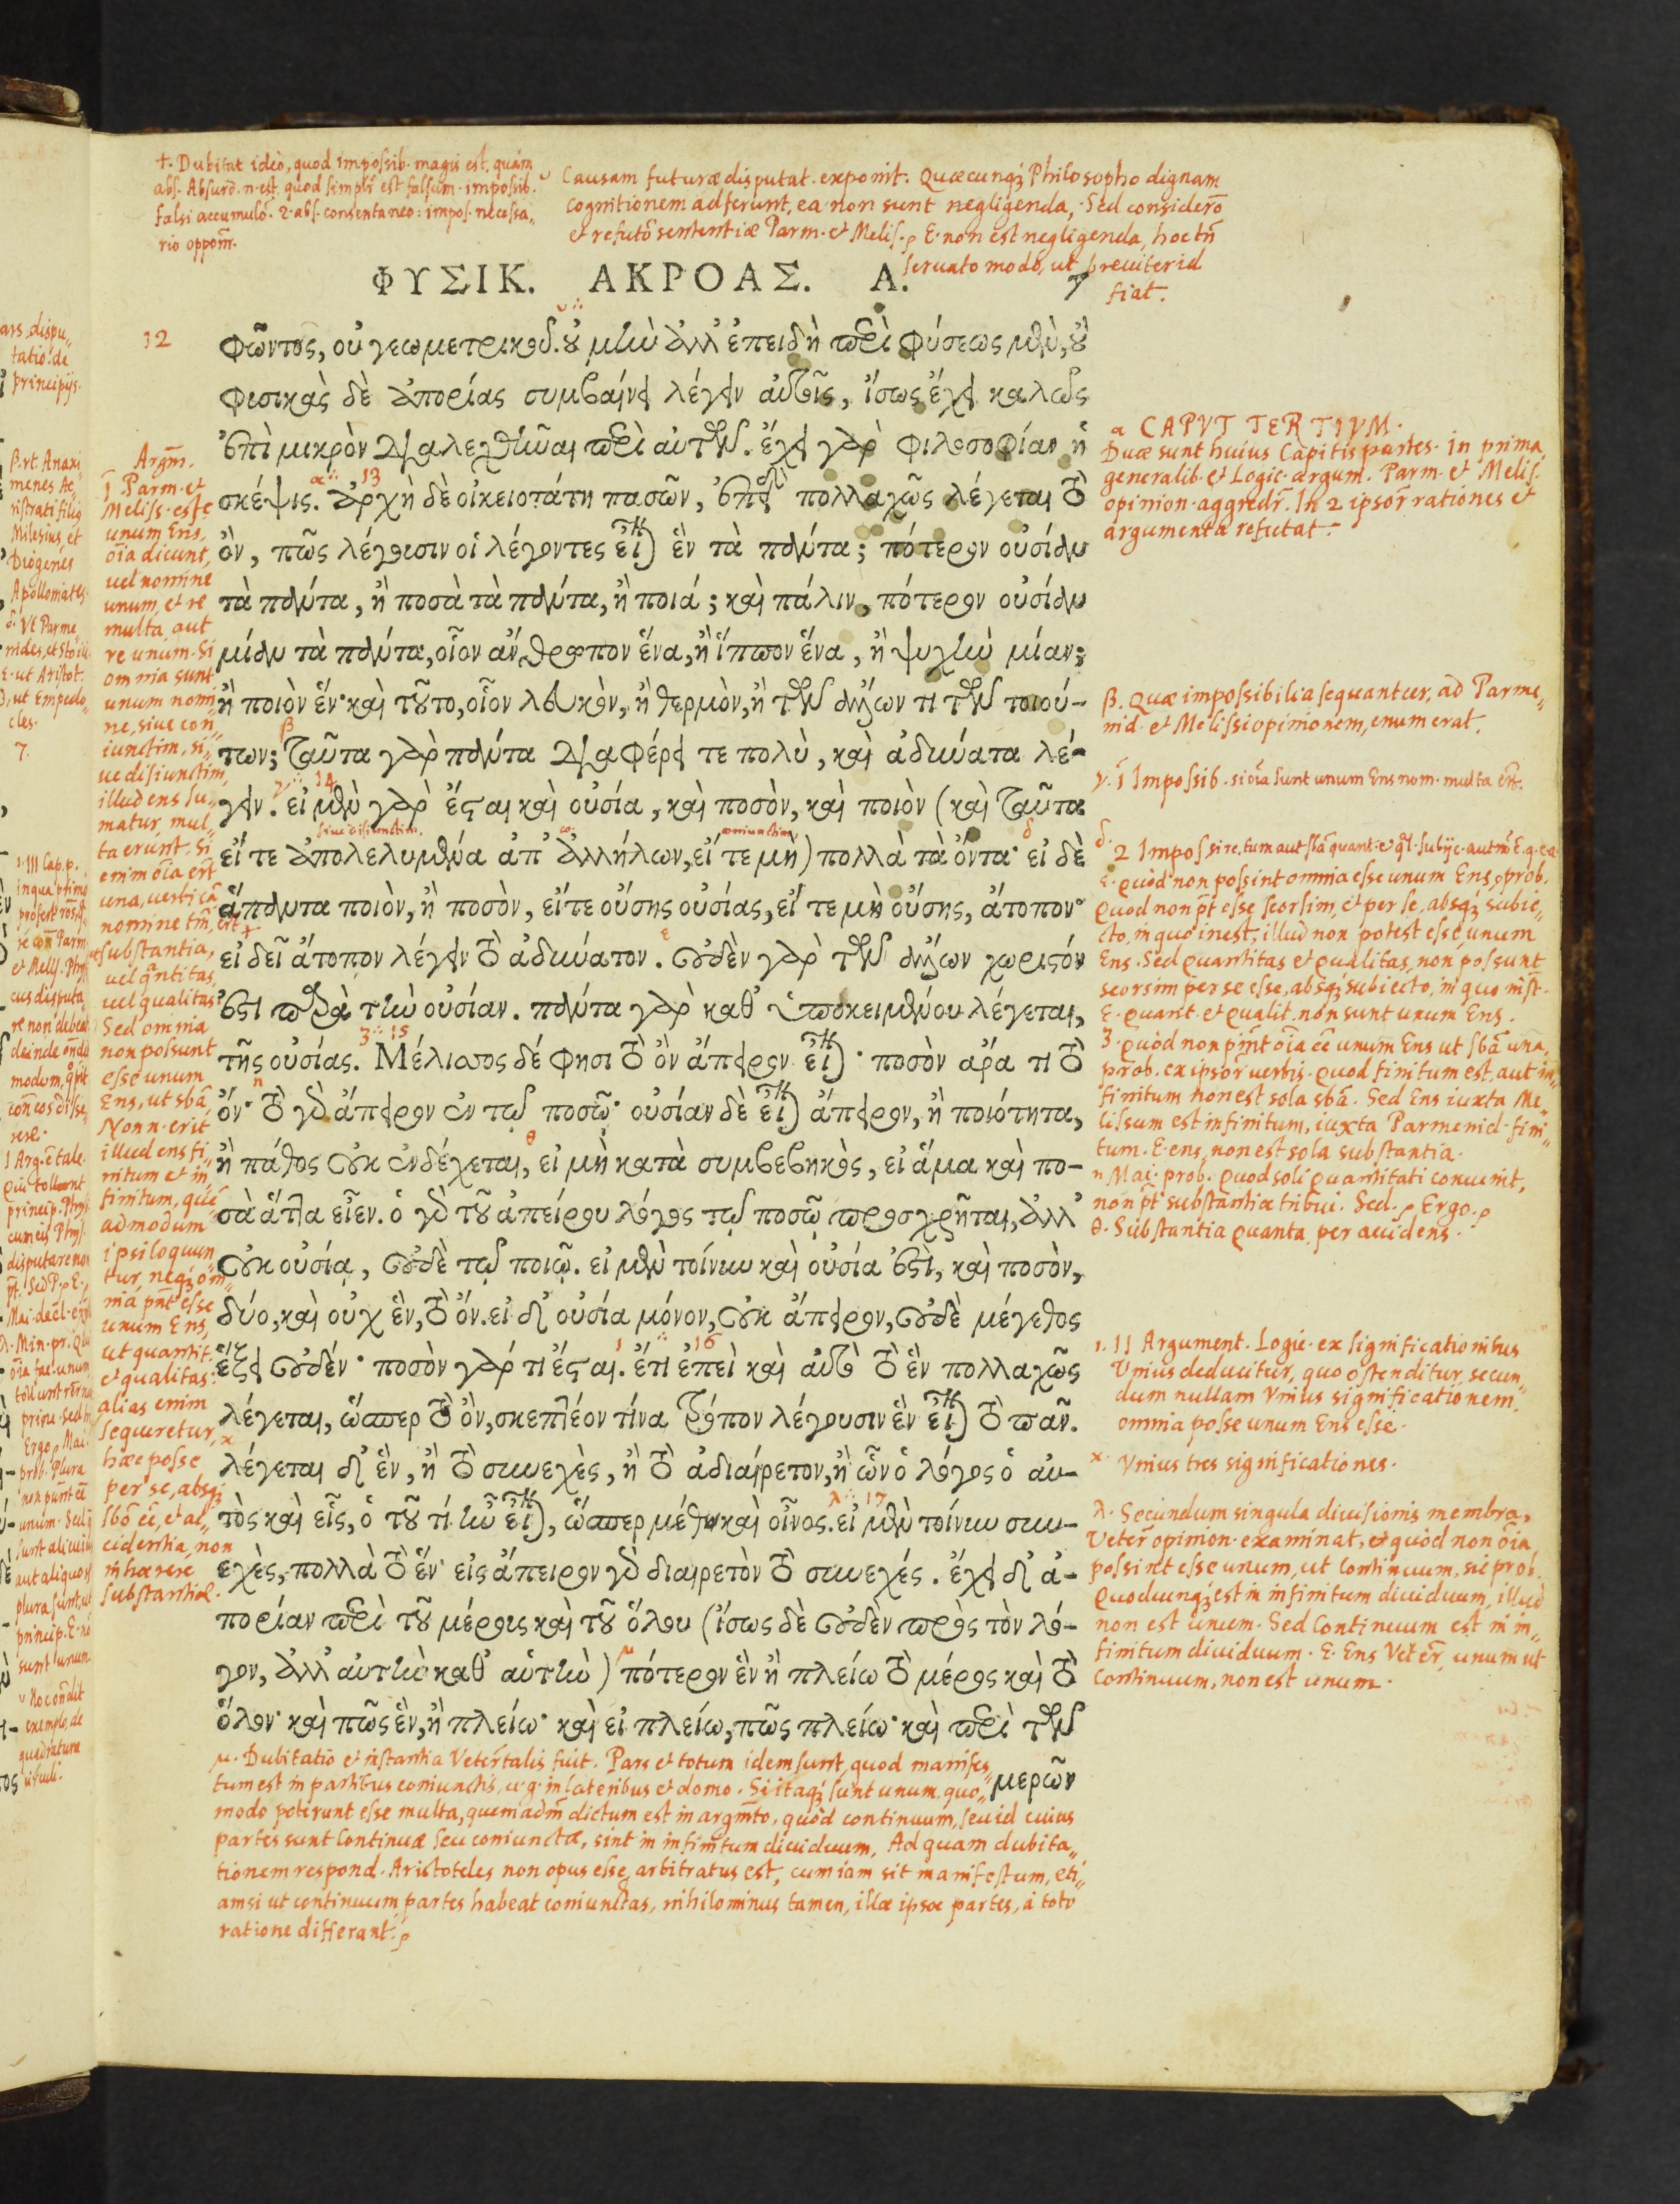 +. Dubitat ideò, quod impossib. magis est, quàm
abs. Absurd. n. est, quod simplr est falsum. impossib.
falsi accumulõ. 2. abs. consentaneo: impos. necessa„
rio opponr.
υ Causam futuræ disputat. exponit. Quæcunq; Philosopho dignam
cognitionem adferunt, ea non sunt negligenda, Sed considerõ
et refutõ sententiæ Parm. et Melis. E. non est negligenda, hoc tñ
seruato modo, ut breuiter id
fiat.
ΦΥΣΙΚ. ΑΚΡΟΑΣ. Α. 7
12
φῶντος, οὐ γεωμετρικοῦ. οὐ μὴν ἀλλ' ἐπειδὴ περὶ φύσεως μὲν, οὐ
φυσικὰς δὲ ἀπορίας συμβαίνει λέγειν αὐτοῖς, ἴσως ἔχει καλῶς
ἐπὶ μικρὸν διαλεχθῆναι περὶ αὐτῶν. ἔχει γὰρ φιλοσοφίαν ἡ
σκέψις. ἀρχὴ δὲ οἰκειοτάτη πασῶν, ἐπεὶ πολλαχῶς λέγεται τὸ
ὂν, πῶς λέγουσιν οἱ λέγοντες εἶναι ἓν τὰ πάντα; πότερον οὐσίαν
τὰ πάντα, ἢ ποσὰ τὰ πάντα, ἢ ποιά; καὶ πάλιν, πότερον οὐσίαν
μίαν τὰ πάντα, οἷον ἄνθρωπον ἕνα, ἢ ἵππον ἕνα, ἢ ψυχὴν μίαν;
ἢ ποιὸν ἕν· καὶ τοῦτο, οἷον λευκὸν, ἢ θερμὸν, ἢ τῶν ἄλλων τι τῶν τοιού-
των; ταῦτα γὰρ πάντα διαφέρει τε πολὺ, καὶ ἀδύνατα λέ-
γειν. εἰ μὲν γὰρ ἔσται καὶ οὐσία, καὶ ποσὸν, καὶ ποιὸν (καὶ ταῦτα
εἴ τε ἀπολελυμένα ἀπ' ἀλλήλων, εἴ τε μὴ) πολλὰ τὰ ὄντα· εἰ δὲ
ἅπαντα ποιὸν, ἢ ποσὸν, εἴτε οὔσης οὐσίας, εἴ τε μὴ οὔσης, ἄτοπον·
εἰ δεῖ ἄτοπον λέγειν τὸ ἀδύνατον. οὐδὲν γὰρ τῶν ἄλλων χωριστόν
ἐστι παρὰ τὴν οὐσίαν. πάντα γὰρ καθ' ὑποκειμένου λέγεται,
τῆς οὐσίας. Μέλισσος δέ φησι τὸ ὂν ἄπειρον εἶναι· ποσὸν ἄρα τι τὸ
ὄν· τὸ γὰρ ἄπειρον ἐν τῷ ποσῷ· οὐσίαν δὲ εἶναι ἄπειρον, ἢ ποιότητα,
ἢ πάθος οὐκ ἐνδέχεται, εἰ μὴ κατὰ συμβεβηκὸς, εἰ ἅμα καὶ πο-
σὰ ἄττα εἶεν. ὁ γὰρ τοῦ ἀπείρου λόγος τῷ ποσῷ προσχρῆται, ἀλλ'
οὐκ οὐσίᾳ, οὐδὲ τῷ ποιῷ. εἰ μὲν τοίνυν καὶ οὐσία ἐστὶ, καὶ ποσὸν,
δύο, καὶ οὐχ ἓν, τὸ ὄν. εἰ δ' οὐσία μόνον, οὐκ ἄπειρον, οὐδὲ μέγεθος
ἕξει οὐδέν· ποσὸν γάρ τι ἔσται. ἔτι ἐπεὶ καὶ αὐτὸ τὸ ἓν πολλαχῶς
λέγεται, ὥσπερ τὸ ὂν, σκεπτέον τίνα τρόπον λέγουσιν ἓν εἶναι τὸ πᾶν.
λέγεται δ' ἓν, ἢ τὸ συνεχὲς, ἢ τὸ ἀδιαίρετον, ἢ ὧν ὁ λόγος ὁ αὐ-
τὸς καὶ εἷς, ὁ τοῦ τί ἦν εἶναι, ὥσπερ μέθυ καὶ οἶνος. εἰ μὲν τοίνυν συν-
εχὲς, πολλὰ τὸ ἕν· εἰς ἄπειρον γὰρ διαιρετὸν τὸ συνεχές. ἔχει δ' ἀ-
πορίαν περὶ τοῦ μέρους καὶ τοῦ ὅλου (ἴσως δὲ οὐδὲν πρὸς τὸν λό-
γον, ἀλλ' αὐτὴν καθ' αὑτὴν) πότερον ἓν ἢ πλείω τὸ μέρος καὶ τὸ
ὅλον· καὶ πῶς ἓν, ἢ πλείω· καὶ εἰ πλείω, πῶς πλείω· καὶ περὶ τῶν
μερῶν
Argm.
1 Parm. et
Meliss. esse
unum Ens,
oĩa dicunt,
uel nomine
unum, et re
multa, aut
re unum. Si
omnia sunt
unum nomi„
ne, siue con„
iunctim, si„
ue disiunctim,
illud ens su„
matur, mul„
ta erunt. Si
enim oĩa ert
una, uerſ cã
nomine tm̃,
substantia,
uel q̃ntitas
uel qualitas
Sed omnia
non possunt
esse unum
Ens, ut sbã
Non n. erit
illud ens fi„
nitum et in„
finitum, quẽ
admodum
ipsi loquun„
tur, neq; om„
nia pñt esse
unum Ens,
ut quantit.
et qualitas:
alias enim
sequeretur,
hæc posse
per se, absq;
sbõ eẽ, et ac„
cidentia, non
inhærere
substantiæ.
α CAPVT TERTIVM.
Duæ sunt huius Capitis partes. in prima
generalib. et Logic. argum. Parm. et Melis.
opinion. aggredr. In 2 ipsor̃ rationes et
argumenta refutat.
β. Quæ impossibilia sequantur, ad Parme„
nid. et Melissi opinionem, enumerat.
γ. 1 Impossib. si oĩa sunt unum Ens nom. multa ert.
δ. 2 Impos
ε. quòd non possint omnia esse unum Ens, prob.
Quod non pt esse seorsim, et per se, absq; subie„
cto, in quo inest, illud non potest esse unum
Ens. Sed Quantitas et qualitas, non possunt
seorsim per se esse, absq; subiecto, in quo inst.
E. quant. et qualit. non sunt unum Ens.
ζ. quòd non pñt oĩa eẽ unum Ens ut sbã una,
prob. ex ipsor̃ uerbis. quod finitum est, aut in„
finitum non est sola sbã. Sed Ens iuxta Me„
lissum est infinitum, iuxta Parmenid. fini„
tum. E. ens, non est sola substantia.
η Mai. prob. Quod soli quantitati conuenit,
non pt substantiæ tribui. Sed. Ergo.
θ. Substantia quanta, per accidens.
ι. II Argument. Logic. ex significationibus
Vnius deducitur, quo ostenditur, secun„
dum nullam Vnius significationem,
omnia posse unum Ens esse.
κ. Vnius tres significationes.
λ. Secundum singula diuisionis membra,
Veter̃ opinion. examinat, et quòd non oĩa
possint esse unum, ut continuum, sic prob.
Quodcunq; est in infinitum diuiduum, illud
non est unum. Sed Continuum est in in„
finitum diuiduum. E. Ens Veter̃, unum ut
Continuum, non est unum.
μ. Dubitatio et instantia Veter̃ talis fuit. Pars et totum idem sunt, quod manifes„
tum est in partibus coniunctis, u. g. in lateribus et domo. Si itaq; sunt unum, quo„
modo poterunt esse multa, quemadm̃ dictum est in argm̃to, quòd continuum, seu id cuius
partes sunt Continuæ seu coniunctæ, sint in infinitum diuiduum. Ad quam dubita„
tionem respond. Aristoteles non opus esse, arbitratus est, cum iam sit manifestum, eti„
amsi ut continuum partes habeat coniunctas, nihilominus tamen, illæ ipsæ partes, à toto
ratione differant.